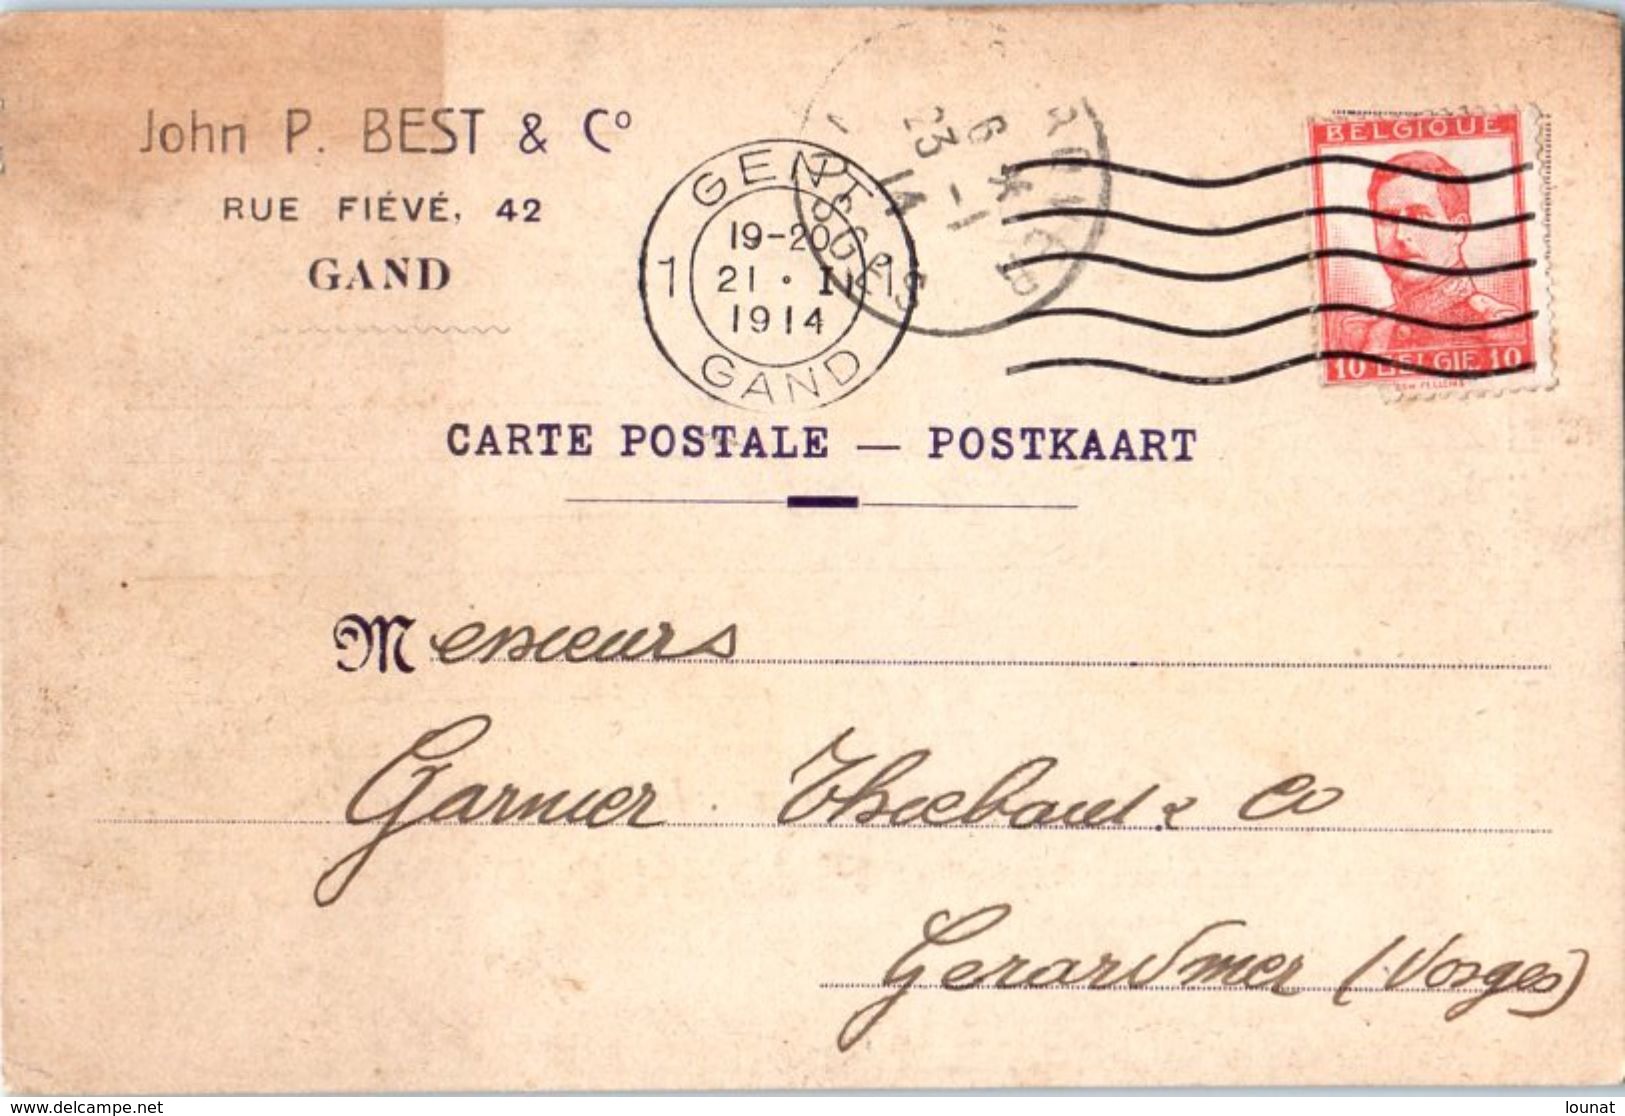 John P. BEST & Cº
RUE FIÉVÉ, 42
GAND
GENT
19-20
21 · I
1914
1 1
GAND
VOSGES
6 *
23 -1
14
BELGIQUE
10 BELGIE 10
CARTE POSTALE — POSTKAART
Messieurs
Garnier Thiebaut & Co
Gerardmer (Vosges)
delcampe.net
lounat